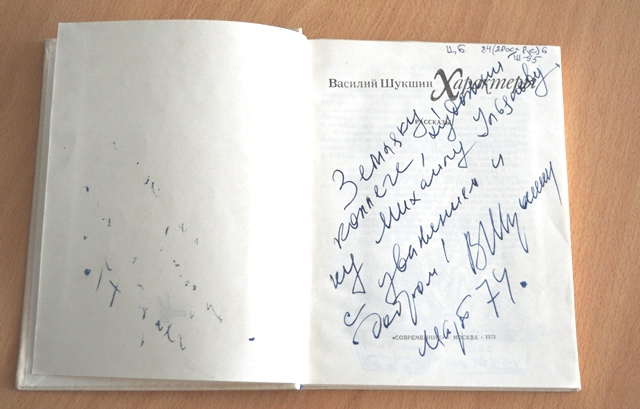 Ц.Б 84(2Рос-Рус)6
Ш-95
Василий Шукшин Характеры
РАССКАЗЫ
Земляку,
коллеге, художни
ку Михаилу
с уважением и
добром!
ВШукшин
Март 74.
«СОВРЕМЕННИК» МОСКВА · 1973